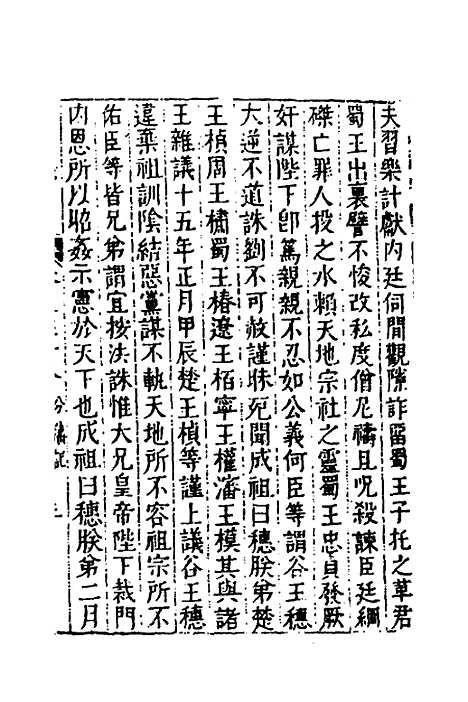 夫習樂計獻內廷伺間觀隙詐畱蜀王子托之草君
蜀王出裏譬不悛改私度僧尼禱且呪殺諫臣廷綱
磔亡罪人投之水賴天地宗社之靈蜀王忠貞發厥
奸謀陛下卽篤親親不忍如公義何臣等謂谷王穗
大逆不道誅劉不可赦謹昧死聞成祖曰穗朕弟楚
王楨周王橚蜀王椿遼王栢寧王權瀋王模其與諸
王雜議十五年正月甲辰楚王楨等謹上議谷王穗
違棄祖訓陰結惡黨謀不軌天地所不容祖宗所不
佑臣等皆兄弟謂宜按法誅惟大兄皇帝陛下裁門
內恩所以昭姦示憲於天下也成祖曰穗朕弟二月